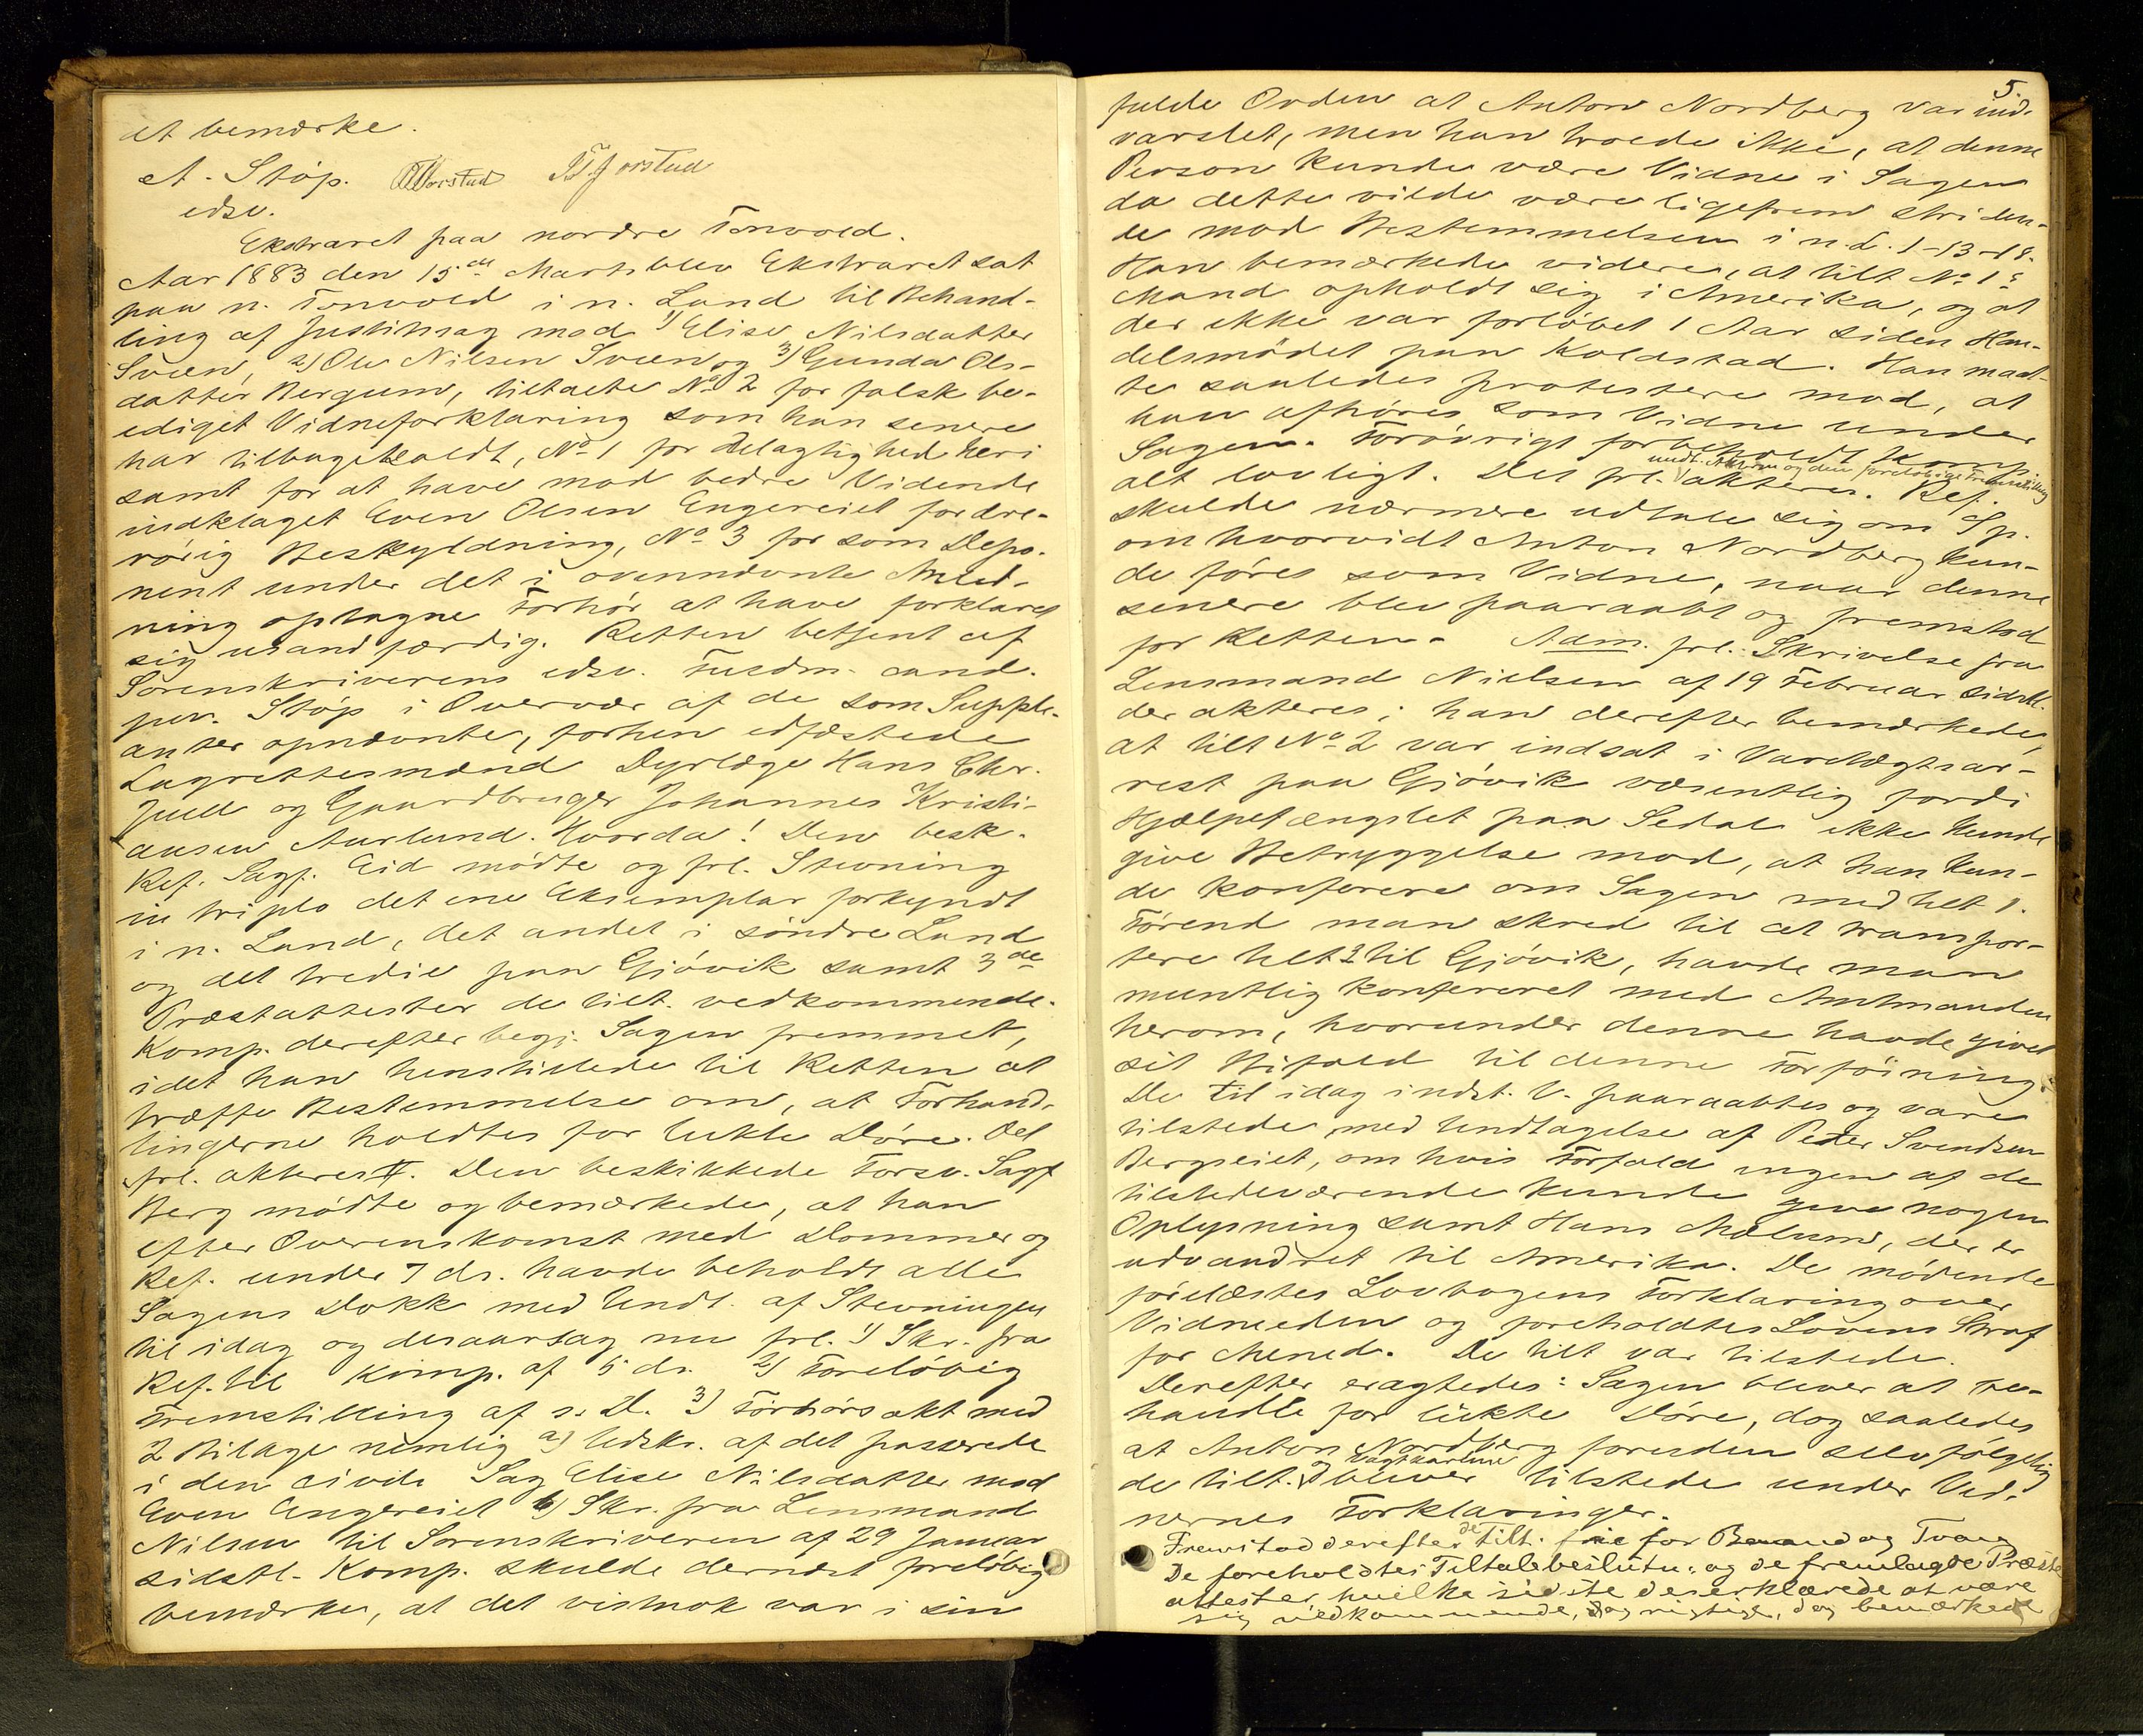 at bemærke.
A. Støp. Torstad T. Fjorstad
edsv.
Ekstraret paa nordre Tonvold.
Aar 1883 den 15de Marts blev Ekstraret sat
paa n. Tonvold i n. Land til Behand-
ling af Justitssag mod 1) Elise Nilsdatter
Sveen, 2) Ole Nilsen Sveen og 3) Gunda Ols-
datter Bergum, tiltalte No 2 for falsk be-
ediget Vidneforklaring som han senere
har tilbagekaldt, No 1 for Delagtighed heri
samt for at have mod bedre Vidende
indklaget Even Olsen Engereiet for ære-
rørig Beskyldning, No 3 for som Depo-
nent under det i ovennævnte Anled-
ning optagne Forhør at have forklaret
sig usandfærdig. Retten betjent af
Sorenskriverens edsv. Fuldm. cand.
jur. Støp i Overvær af de som Supple-
anter opnævnte, forhen edfæstede
Lagrettesmænd Dyrlæge Hans Chr.
Juell og Gaardbruger Johannes Kristi-
ansen Aurlund. Hvorda! Den besk.
Ref. Sagf. Eid mødte og frl. Stevning
in triplo det ene Eksemplar forkyndt
i n. Land, det andet i søndre Land
og det tredie paa Gjøvik samt 3de
Præstattester de tilt. vedkommende.
Komp. derefter begj. Sagen fremmet,
idet han henstillede til Retten at
træffe Bestemmelse om, at Forhand-
lingerne holdtes for lukte Døre. Det
frl. akteres. Den beskikkede Forsv. Sagf
Berg mødte og bemærkede, at han
efter Overenskomst med Dommer og
Ref. under 7 ds. havde beholdt alle
Sagens Dokk med Undt. af Stevningen
til idag og desaarsag nu frl. 1) Skr. fra
Ref. til Komp. af 5 ds. 2) Foreløbig
Fremstilling af s. D. 3) Forhørsakt med
2 Bilage nemlig a) Udskr. af det passerede
i den civile Sag Elise Nilsdatter mod
Even Engereiet b) Skr. fra Lensmand
Nilsen til Sorenskriveren af 29 Januar
sidstl. Komp. skulde dernæst foreløbig
bemærke, at det vistnok var i sin
5.
fulde Orden at Anton Nordberg var ind-
varslet, men han troede ikke, at denne
Person kunde være Vidne i Sagen
da dette vilde være ligefrem striden-
de mod Bestemmelsen i n. L. 1-13-18.
Han bemærkede videre, at tilt No 1s
Mand opholdt sig i Amerika, og at
der ikke var forløbet 1 Aar siden Han-
delsmødet paa Koldstad. Han maat-
te saaledes protestere mod, at
han afhøres som Vidne under
Sagen. Forøvrigt forbeholdt Komp.
alt lovligt. Det frl. undt. Akten og den foreløbige Fremstilling akteres. Ref.
skulde nærmere udtale sig om Sp.
om hvorvidt Anton Nordberg kun-
de føres som Vidne, naar denne
senere blev paaraabt og fremstod
for Retten. Adm. frl. Skrivelse fra
Lensmand Nielsen af 19 Februar sidstl.
der akteres; han derefter bemærkede,
at tilt No 2 var indsat i Varetægtsar-
rest paa Gjøvik væsentlig fordi
Hjælpefængslet paa Sedal ikke kunde
give Betryggelse mod, at han kun-
de konferere om Sagen med tilt 1.
Førend man skred til at transpor-
tere tilt 2 til Gjøvik, havde man
mundtlig konfereret med Amtmanden
herom, hvorunder denne havde givet
sit Bifald til denne Forføining.
De til idag indst. V. paaraabtes og vare
tilstede med Undtagelse af Peder Svendsen
Bergseiet, om hvis Forfald ingen af de
tilstedeværende kunde give nogen
Oplysning samt Hans Mælum, der er
udvandret til Amerika. De mødende
forelæstes Lovbogens Forklaring over
Vidneeden og foreholdtes Lovens Straf
for Mened. De tilt var tilstede.
Derefter eragtedes: Sagen bliver at be-
handle for lukte Døre, dog saaledes
at Anton Nordberg foruden selvfølgelig
de tilt. og Vagtkarlene bliver tilstede under Vid-
nernes Forklaringer.
Fremstod derefter de tilt. frie for Baand og Tvang
De foreholdtes Tiltalebeslutn. og de fremlagde Præste
attester, hvilke sidste de erklærede at være
sig vedkommende, og rigtige, dog bemærkede